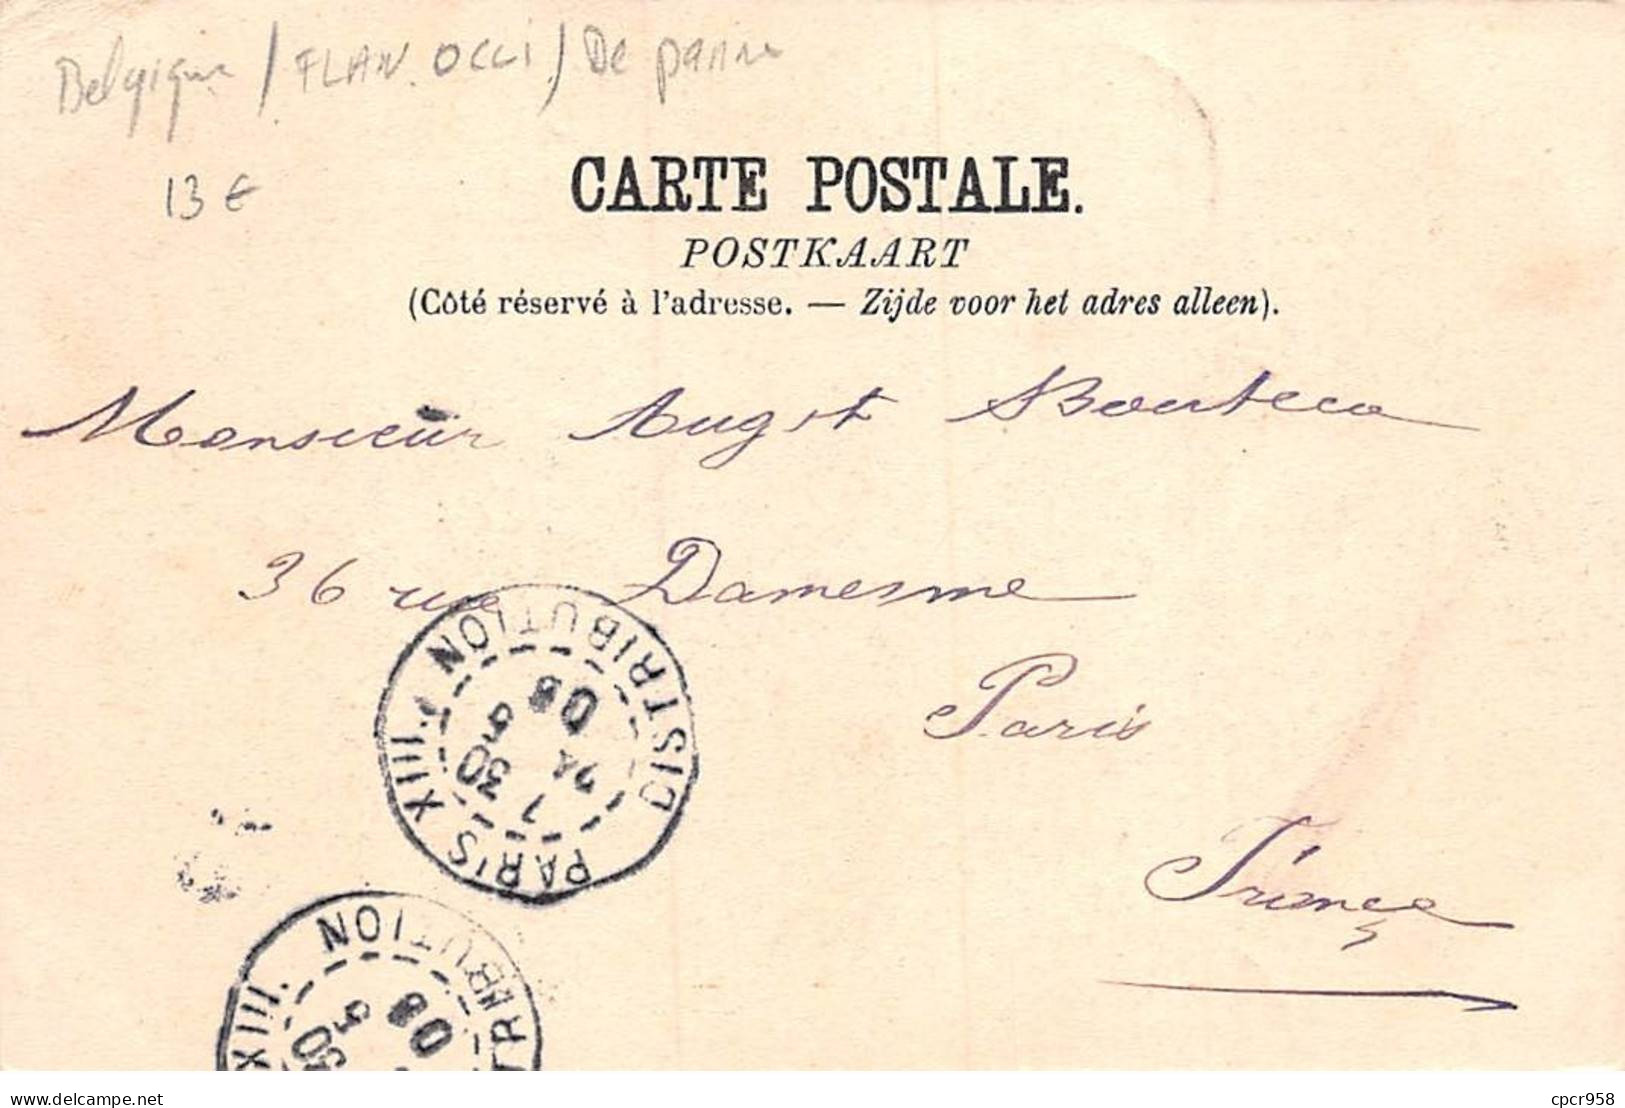 Belgique / FLAN. OCCI / De panne
13 €
CARTE POSTALE.
POSTKAART
(Côté réservé à l'adresse. — Zijde voor het adres alleen).
Monsieur Augst
36 rue Damesme
Paris
France
PARIS XIII. DISTRIBUTION
1 30
24 5
08
XIII. TRIBUTION
30
5
08
delcampe.net
cpcr958